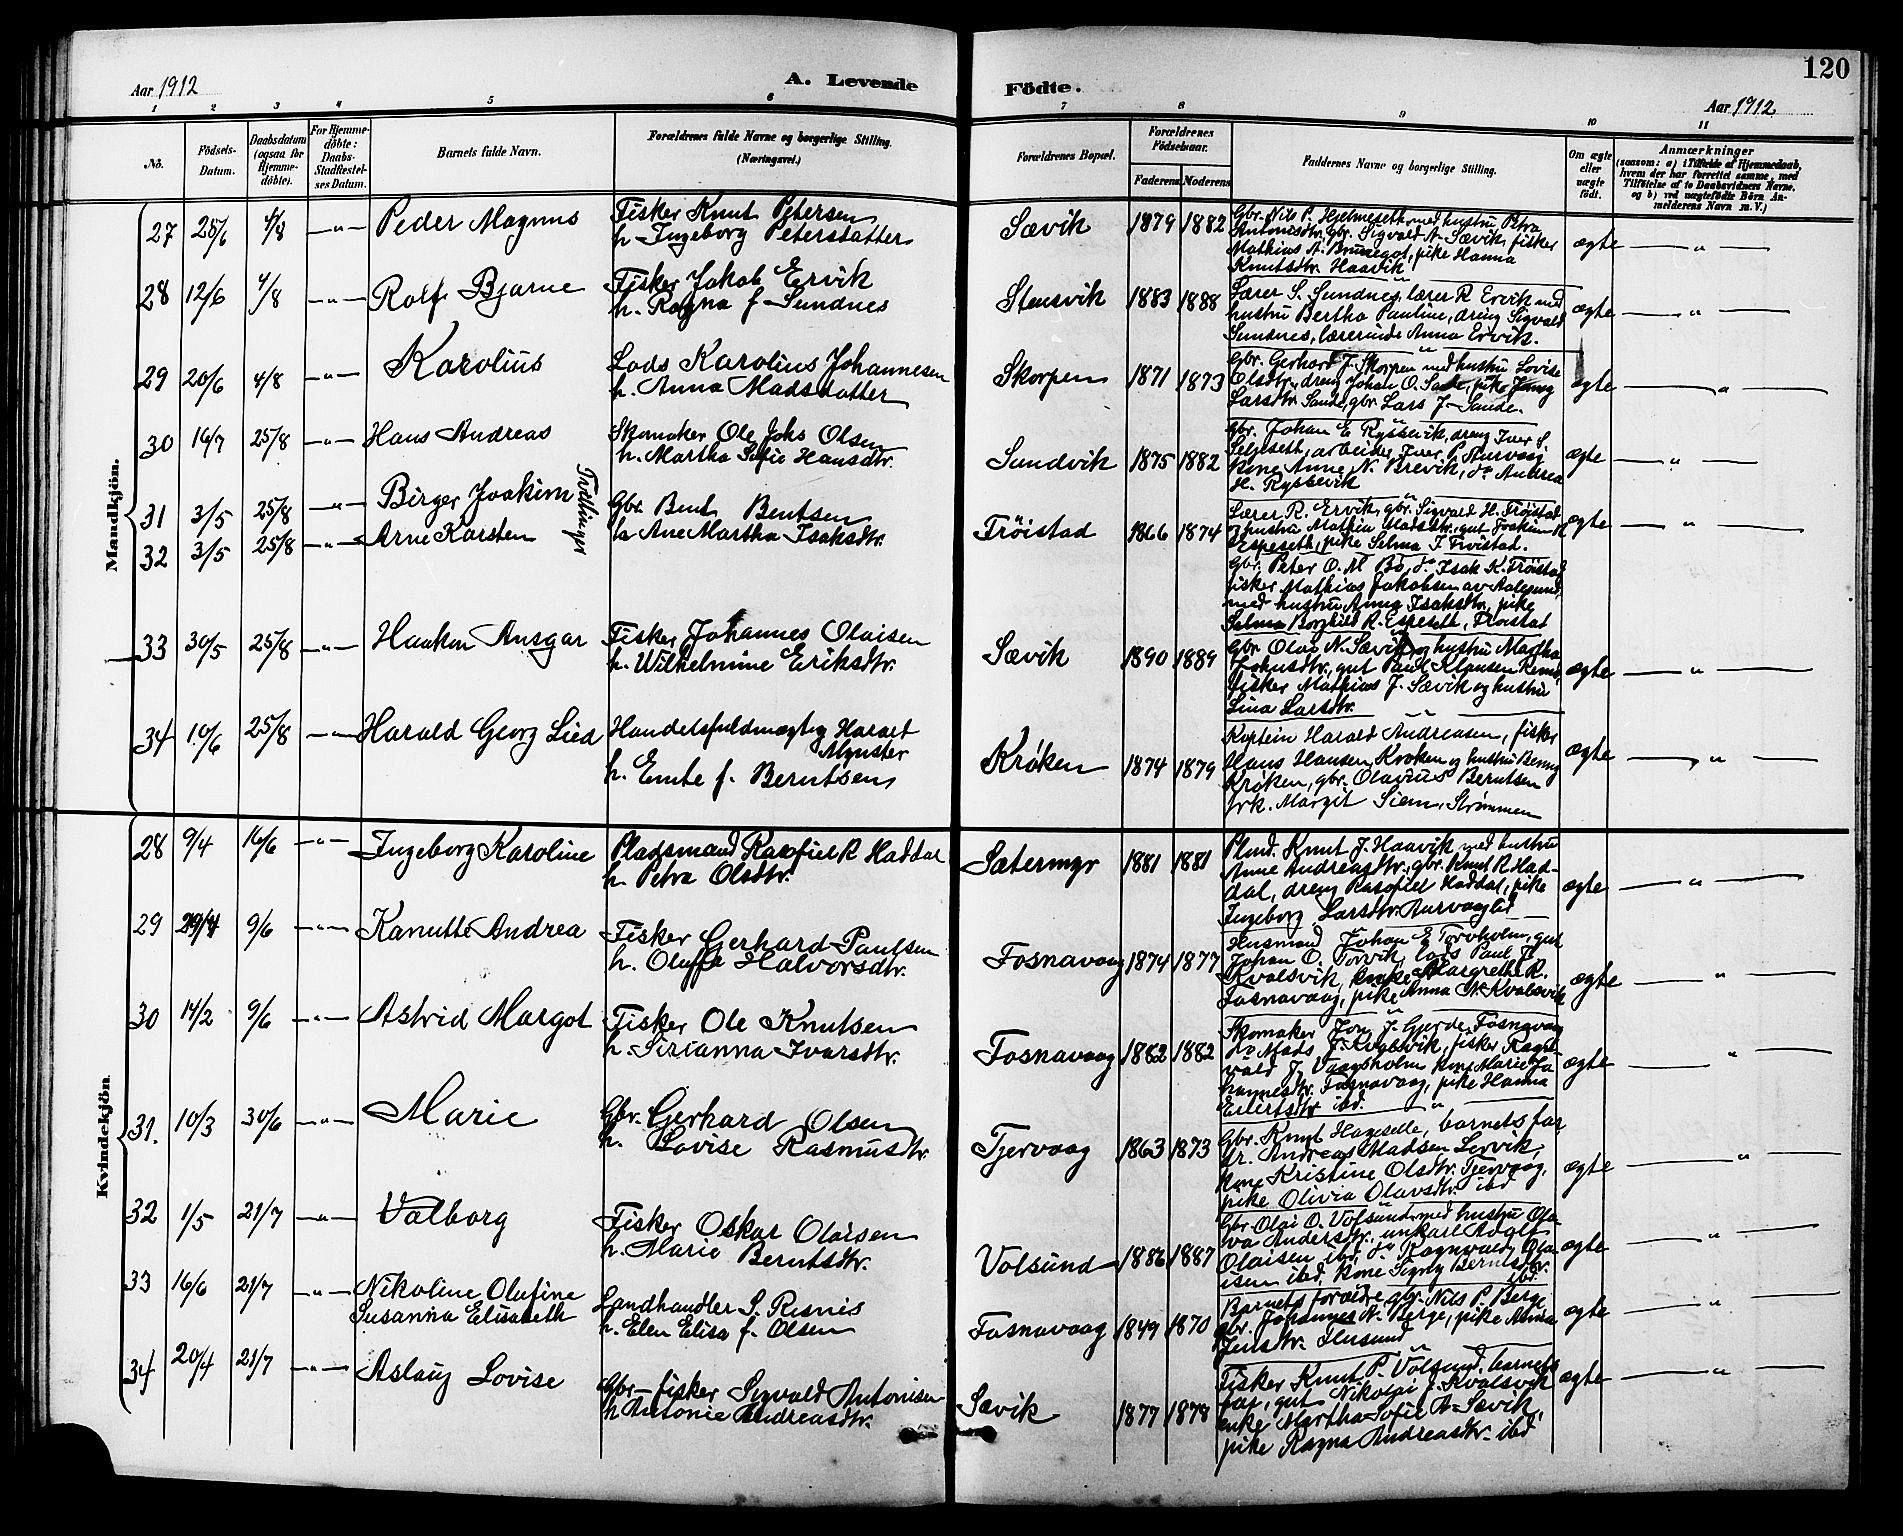 Aar 1912
A. Levende
Födte.
120
Aar 1912
1 2 3 4 5 6 7 8 9 10 11
No.
Födsels-Datum.
Daabsdatum (ogsaa for Hjemme-döbte).
For Hjemme-döbte: Daabs-Stadfæstel-ses Datum.
Barnets fulde Navn.
Forældrenes fulde Navne og borgerlige Stilling.
(Næringsvei.)
Forældrenes Bopæl.
Forældrenes Födselsaar.
Faderens
Moderens
Faddernes Navne og borgerlige Stilling.
Om ægte eller uægte født.
Anmærkninger
(saasom: a) i Tilfælde af Hjemmedaab,
hvem der har forrettet samme, med
Tilföielse af to Daabsvidners Navne,
og b) ved uægtefödte Börn An-
melderens Navn m. V.)
Mandkjön.
27 25/6 4/8 —"— Peder Magnus
Fisker Knut Petersen
h. Ingeborg Petersdatter
Sævik 1879 1882
Gbr. Nils P. Hjelmeseth med hustru Petra
Antonisdtr, gbr. Sigvald A. Sævik, fisker
Mathias A. Brunegot, pike Hanna
Knutsdtr. Haavik
ægte — " —
28 12/6 4/8 —"— Rolf Bjarne
Fisker Jakob Ervik
h. Ragna f. Sundnes
Stensvik 1883 1888
Lærer S. Sundnes, lærer R. Ervik med
hustru Bertha Pauline, dreng Sigvald
Sundnes, lærerinde Anna Ervik.
ægte — " —
29 20/6 4/8 —"— Karolius
Lods Karolius Johannesen
h. Anna Madsdatter
Skorpen 1871 1873
Gbr. Gerhard J. Skorpen med hustru Lovise
Olsdtr., dreng Johan O. Sande, pike Jenny
Larsdtr. Sande, gbr. Lars J. Sande.
ægte — " —
30 16/7 25/8 —"— Hans Andreas
Skomaker Ole Johs Olsen
h. Martha Sofie Hansdtr.
Sundvik 1875 1882
Gbr. Johan E. Ryssevik, dreng Iver S.
Seljeseth, arbeider Iver P. Aurvaag
kone Anne N. Brevik, do Andrea
H. Ryssevik
ægte — " —
31 3/5 25/8 —"— Birger Joakim
Tvillinger
32 3/5 25/8 —"— Arne Karsten
Gbr. Bent Bentsen
h. Ane Martha Isaksdtr.
Fröistad 1866 1874
Lærer R. Ervik, gbr. Sigvald H. Fröistad
og hustru Mathea Madsdtr, gut Joakim R
Espeseth, pike Selma I. Fröistad.
Gbr. Peter O. M. Bö, do Isak K. Fröistad
fisker Mathias Jakobsen av Aalesund,
med hustru Anna Isaksdtr, pike
Selma Borghild R. Espeseth, Fröistad
ægte — " —
33 30/5 25/8 —"— Haakon Ansgar
Fisker Johannes Olaisen
h. Wilhelmine Eriksdtr.
Sævik 1890 1889
Gbr. Olai N. Sævik og hustru Martha
Johnsdtr, gut Paul Klausen Remö,
fisker Mathias J. Sævik og hustru
Lina Larsdtr.
ægte — " —
34 10/6 25/8 —"— Harald Georg Lied
Handelsfuldmægtig Harald
Mynster
h. Emte f. Berntsen
Kröken 1874 1879
Kaptein Harald Andreasen, fisker
Hans Hansen Kroken og hustru Benny
Kröken, gbr. Olavius Berntsen
frk. Margit Siem, Strömmen
ægte — " —
Kvindekjön.
28 9/4 16/6 —"— Ingeborg Karoline
Pladsmand Rasfiel R. Haddal
h. Petra Olsdtr.
Sætermyr 1881 1881
Plmd. Knut J. Haavik med hustru
Anne Andreasdtr, gbr. Knut R. Had-
dal, dreng Rasofiel Haddal, pike
Ingeborg Larsdtr. Aurvaaglid
ægte — " —
29 29/4 9/6 —"— Kanutte Andrea
Fisker Gerhard Paulsen
h. Oluffa Halvorsdtr.
Fosnavaag 1874 1877
Husmand Johan E. Torvholm, gut
Johan O. Torvik, lods Paul J.
Kvalsvik, enke Margrethe R.
Fosnavaag, pike Anna N. Kvalsvik
ægte — " —
30 14/2 9/6 —"— Astrid Margot
Fisker Ole Knutsen
h. Sirianna Ivarsdtr.
Fosnavaag 1882 1882
Skomaker Jon J. Gjerde, Fosnavaag
do Mads J. Kvalsvik, fisker Ragn-
vald J. Vaagsholm kone Marie Jo
hannesdtr. Fosnavaag, pike Hanna
Eilertsdtr ibd.
ægte — " —
31. 10/3 30/6 —"— Marie
Gbr. Gerhard Olsen
h. Lovise Rasmusdtr.
Tjervaag 1863 1873
Gbr. Knut Hageselle, barnets far,
Ur. Andreas Madsen Lervik,
kone Kristine Olsdtr. Tjervaag,
pike Olivia Olavsdtr. ibd
ægte — " —
32 1/5 21/7 —"— Valborg
Fisker Oskar Olaisen
h. Marie Berntsdtr.
Volsund 1886 1887
Gbr. Olai O. Volsund med hustru Ola-
va Andersdtr., unkarl Adolf
Olaisen ibd, do Ragnvald Ola-
isen ibd, kone Signy Berntsdtr.
ibd.
ægte — " —
33 16/6 21/7 —"— Nikoline Olufine
Susanna Elisabeth
Landhandler S. Risnes
h. Elen Elisa f. Olsen
Fosnavaag 1849 1870
Barnets forældre, gbr. Nils P. Berge
gbr. Johannes A. Berge, pike Alvina
Jensdtr. Ilesund
ægte — " —
34 20/4 21/7 —"— Aslaug Lovise
Gbr.-fisker Sigvald Antonisen
h. Antonie Andreasdtr.
Sævik 1877 1878
Fisker Knut P. Volsund, barnets
far, gut Nikolai J. Kvalsvik
enke Martha Sofie A. Sævik,
pike Ragna Andreasdtr. ibd
ægte — " —